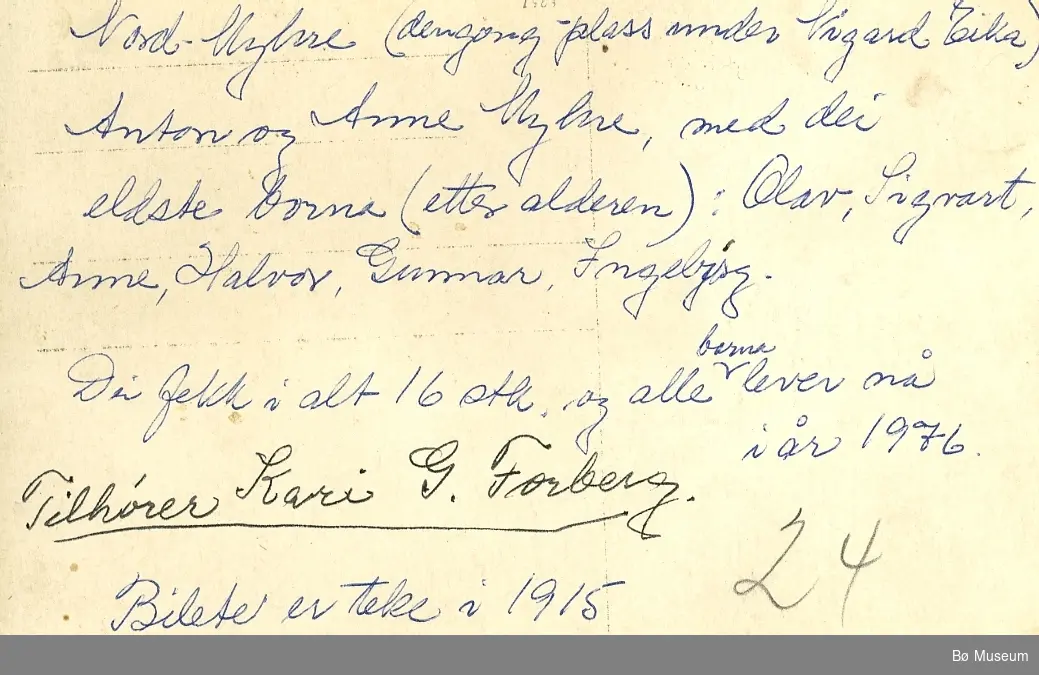 Nord-Myhre (dengong plass under Vigard Eika)
Anton og Anne Myhre, med dei
eldste borna (etter alderen): Olav, Sigvart,
Anne, Halvor, Gunnar, Ingebjørg.
Dei fekk i alt 16 stk. og alle borna lever nå
i år 1976.
Tilhører Kari G. Forberg.
24
Bilete er teke i 1915
Bø Museum